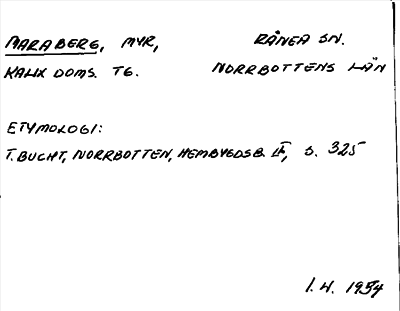 MARABERG, MYR, RÅNEA SN.
KALIX DOMS. TG. NORRBOTTENS LÄN
ETYMOLOGI:
T. BUCHT, NORRBOTTEN, HEMBYGDSB. II, S. 325
1.4. 1954